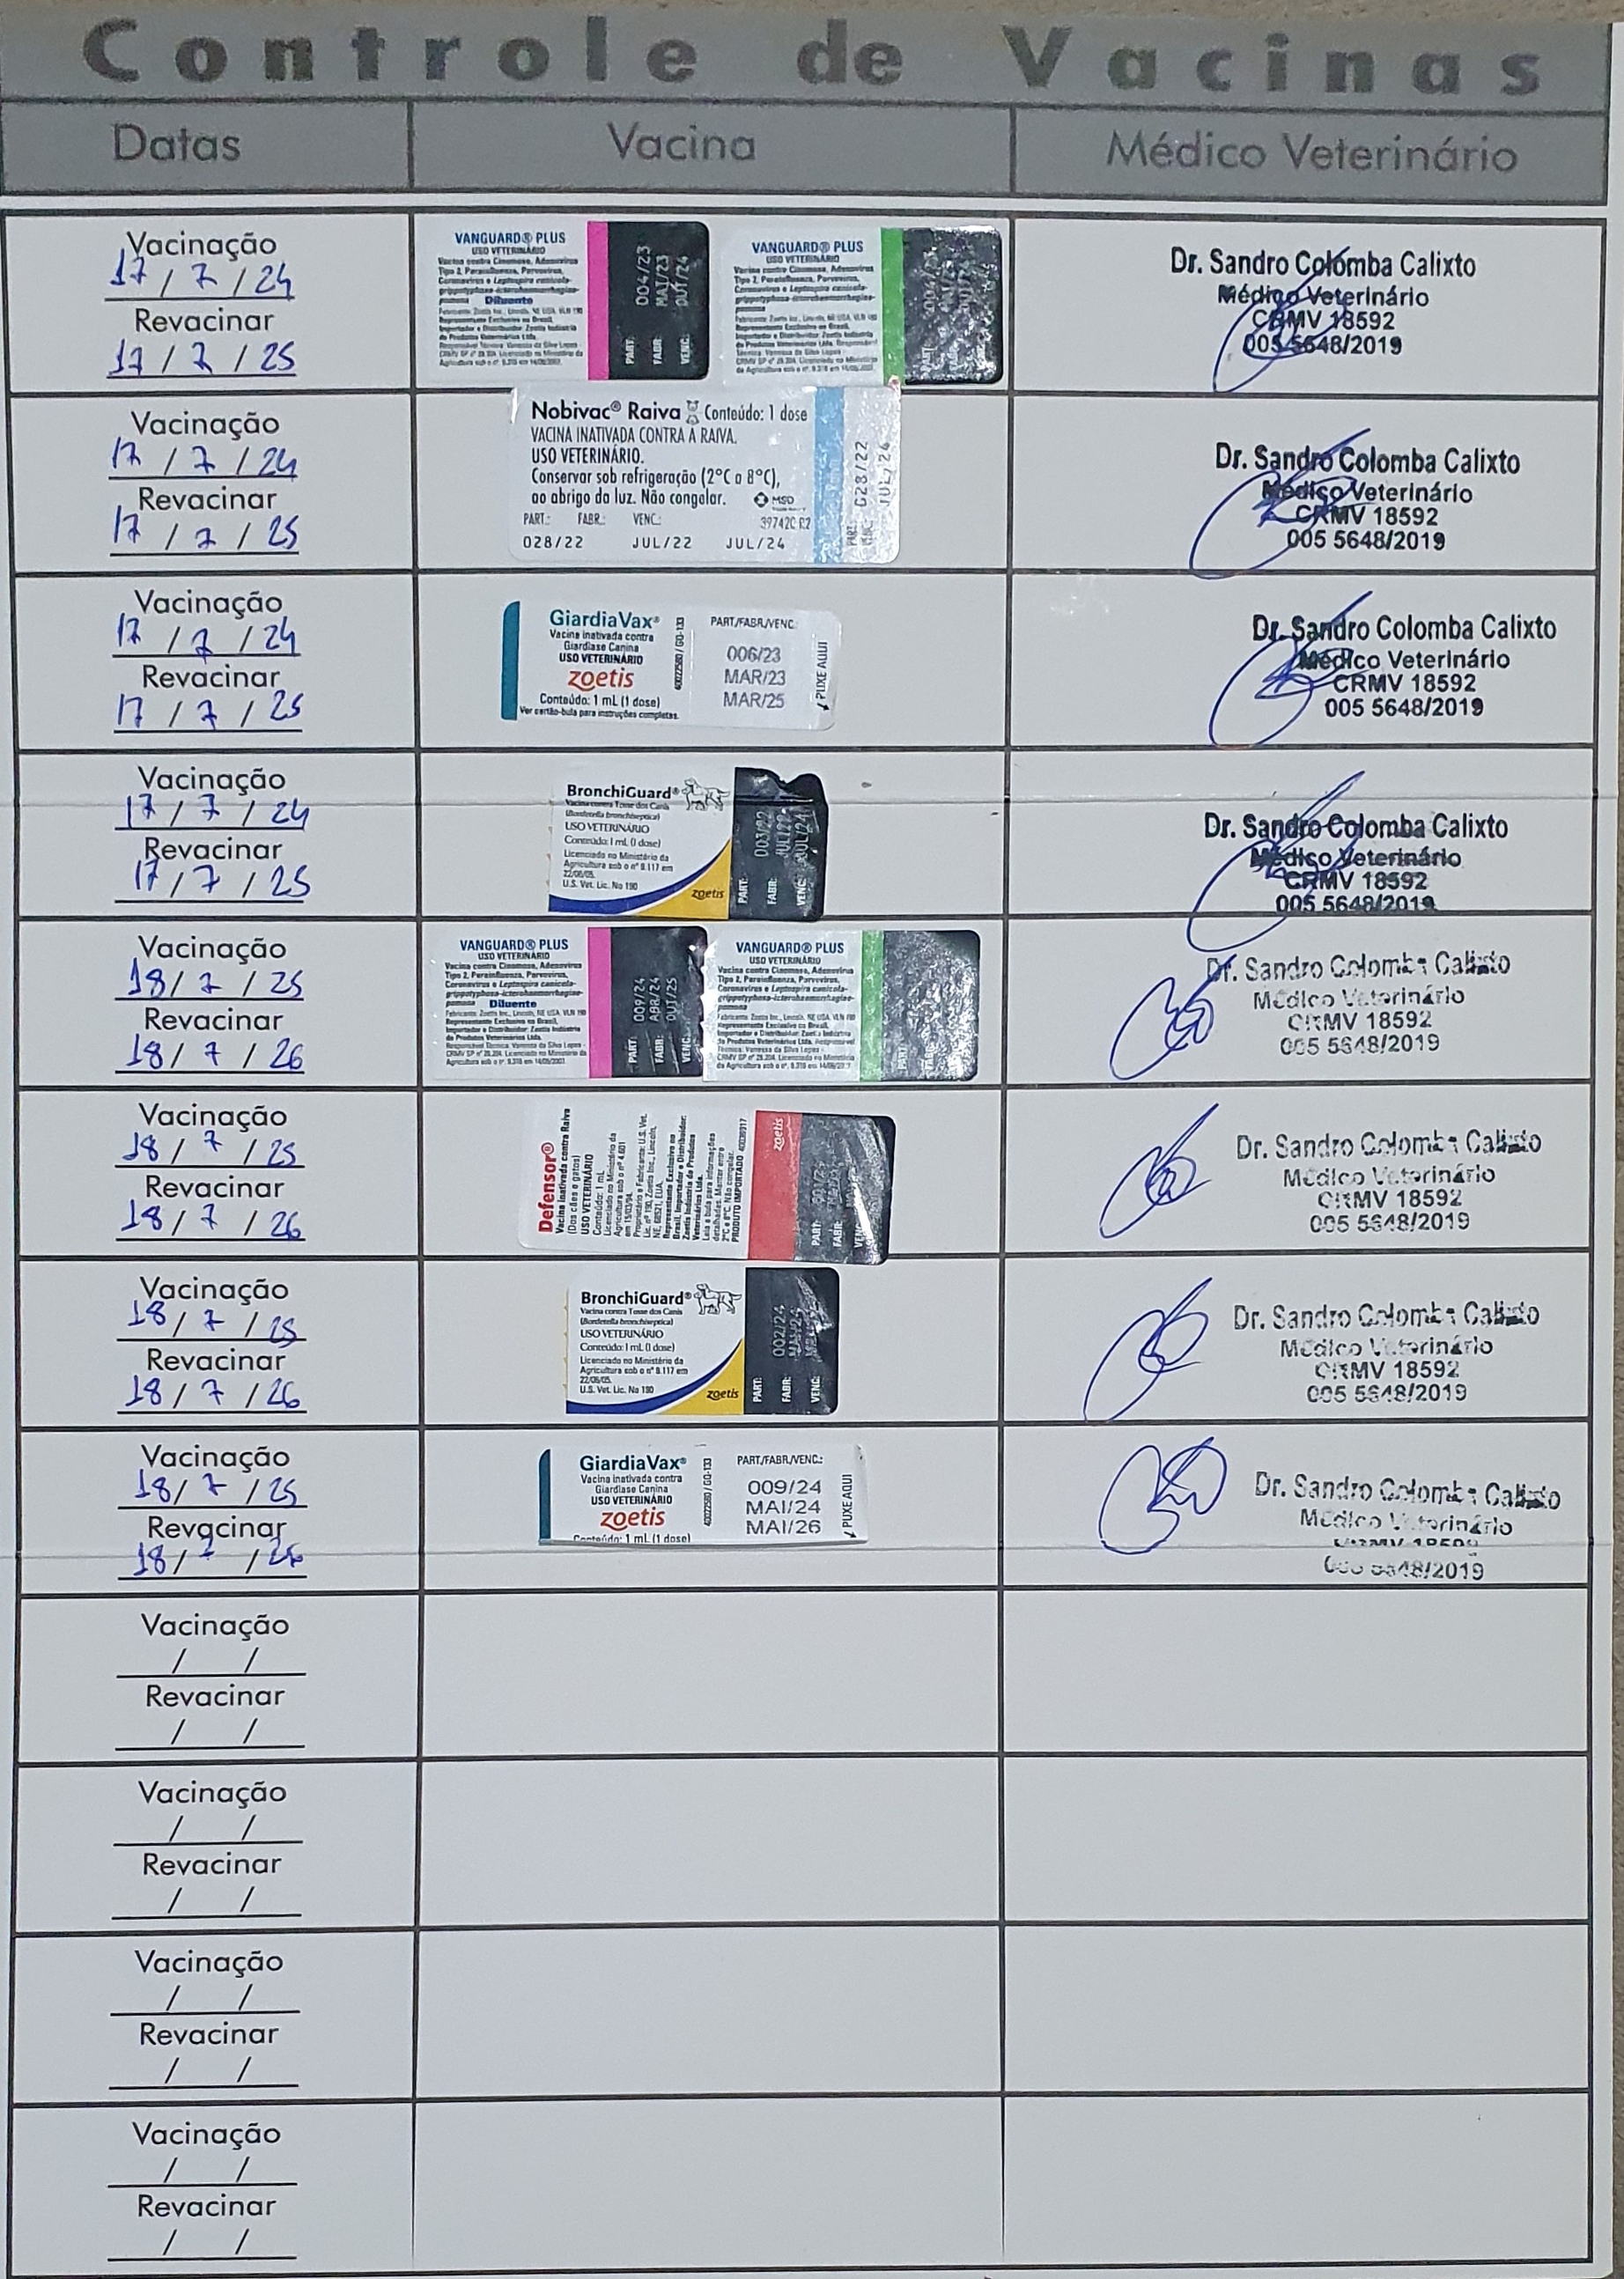 Controle de Vacinas
Datas
Vacina
Médico Veterinário
Vacinação
17 / 7 / 24
Revacinar
17 / 7 / 25
VANGUARD® PLUS
USO VETERINÁRIO
Vacina contra Cinomose, Adenovírus
Tipo 2, Parainfluenza, Parvovirus,
Coronavírus e Leptospira canicola-
grippotyphosa-icterohaemorrhagiae-
pomona Diluente
PART: 004/23
FABR: MAI/23
VENC: OUT/24
VANGUARD® PLUS
USO VETERINÁRIO
Vacina contra Cinomose, Adenovírus
Tipo 2, Parainfluenza, Parvovirus,
Coronavírus e Leptospira canicola-
grippotyphosa-icterohaemorrhagiae-
pomona
Dr. Sandro Colomba Calixto
Médico Veterinário
CRMV 18592
005 5648/2019
Vacinação
17 / 7 / 24
Revacinar
17 / 7 / 25
Nobivac® Raiva Conteúdo: 1 dose
VACINA INATIVADA CONTRA A RAIVA.
USO VETERINÁRIO.
Conservar sob refrigeração (2°C a 8°C),
ao abrigo da luz. Não congelar.
MSD
PART.: FABR.: VENC.:
39742C R2
028/22 JUL/22 JUL/24
028/22
JUL/24
Dr. Sandro Colomba Calixto
Médico Veterinário
CRMV 18592
005 5648/2019
Vacinação
17 / 7 / 24
Revacinar
17 / 7 / 25
GiardiaVax®
Vacina inativada contra
Giardiase Canina
USO VETERINÁRIO
zoetis
Conteúdo: 1 mL (1 dose)
Ver cartão-bula para instruções completas.
40022580 / GO-133
PART/FABR/VENC.
006/23
MAR/23
MAR/25
PUXE AQUI
Dr. Sandro Colomba Calixto
Médico Veterinário
CRMV 18592
005 5648/2019
Vacinação
17 / 7 / 24
Revacinar
17 / 7 / 25
BronchiGuard®
Vacina contra Tosse dos Canis
(Bordetella bronchiseptica)
USO VETERINÁRIO
Conteúdo: 1 mL (1 dose)
Licenciado no Ministério da
Agricultura sob o nº 9.117 em
22/06/05.
U.S. Vet. Lic. No 190
zoetis
PART: 003/22
FABR: JUL/22
VENC: JUL/24
Dr. Sandro Colomba Calixto
Médico Veterinário
CRMV 18592
005 5648/2019
Vacinação
18 / 7 / 25
Revacinar
18 / 7 / 26
VANGUARD® PLUS
USO VETERINÁRIO
Vacina contra Cinomose, Adenovírus
Tipo 2, Parainfluenza, Parvovirus,
Coronavírus e Leptospira canicola-
grippotyphosa-icterohaemorrhagiae-
pomona Diluente
PART: 009/24
FABR: ABR/24
VENC: OUT/25
VANGUARD® PLUS
USO VETERINÁRIO
Vacina contra Cinomose, Adenovírus
Tipo 2, Parainfluenza, Parvovirus,
Coronavírus e Leptospira canicola-
grippotyphosa-icterohaemorrhagiae-
pomona
PART:
FABR:
Dr. Sandro Colomba Calixto
Médico Veterinário
CRMV 18592
005 5648/2019
Vacinação
18 / 7 / 25
Revacinar
18 / 7 / 26
Defensor®
Vacina inativada contra Raiva
(Dos cães e gatos)
USO VETERINÁRIO
Conteúdo: 1 mL
Licenciado no Ministério da
Agricultura sob o nº 4.601
em 15/03/94.
Proprietário e Fabricante: U.S. Vet.
Lic. nº 190, Zoetis Inc., Lincoln,
NE, 68521, EUA.
Representante Exclusivo no
Brasil, Importador e Distribuidor:
Zoetis Indústria de Produtos
Veterinários Ltda.
Leia a bula para informações
detalhadas. Manter entre
2°C e 8°C. Não congelar.
PRODUTO IMPORTADO
zoetis
PART:
FABR:
VENC:
Dr. Sandro Colomba Calixto
Médico Veterinário
CRMV 18592
005 5648/2019
Vacinação
18 / 7 / 25
Revacinar
18 / 7 / 26
BronchiGuard®
Vacina contra Tosse dos Canis
(Bordetella bronchiseptica)
USO VETERINÁRIO
Conteúdo: 1 mL (1 dose)
Licenciado no Ministério da
Agricultura sob o nº 9.117 em
22/06/05.
U.S. Vet. Lic. No 190
zoetis
PART: 002/24
FABR:
VENC:
Dr. Sandro Colomba Calixto
Médico Veterinário
CRMV 18592
005 5648/2019
Vacinação
18 / 7 / 25
Revacinar
18 / 7 / 26
GiardiaVax®
Vacina inativada contra
Giardiase Canina
USO VETERINÁRIO
zoetis
Conteúdo: 1 mL (1 dose)
40022580 / GO-133
PART./FABR./VENC.:
009/24
MAI/24
MAI/26
PUXE AQUI
Dr. Sandro Colomba Calixto
Médico Veterinário
CRMV 18592
005 5648/2019
Vacinação
/ /
Revacinar
/ /
Vacinação
/ /
Revacinar
/ /
Vacinação
/ /
Revacinar
/ /
Vacinação
/ /
Revacinar
/ /